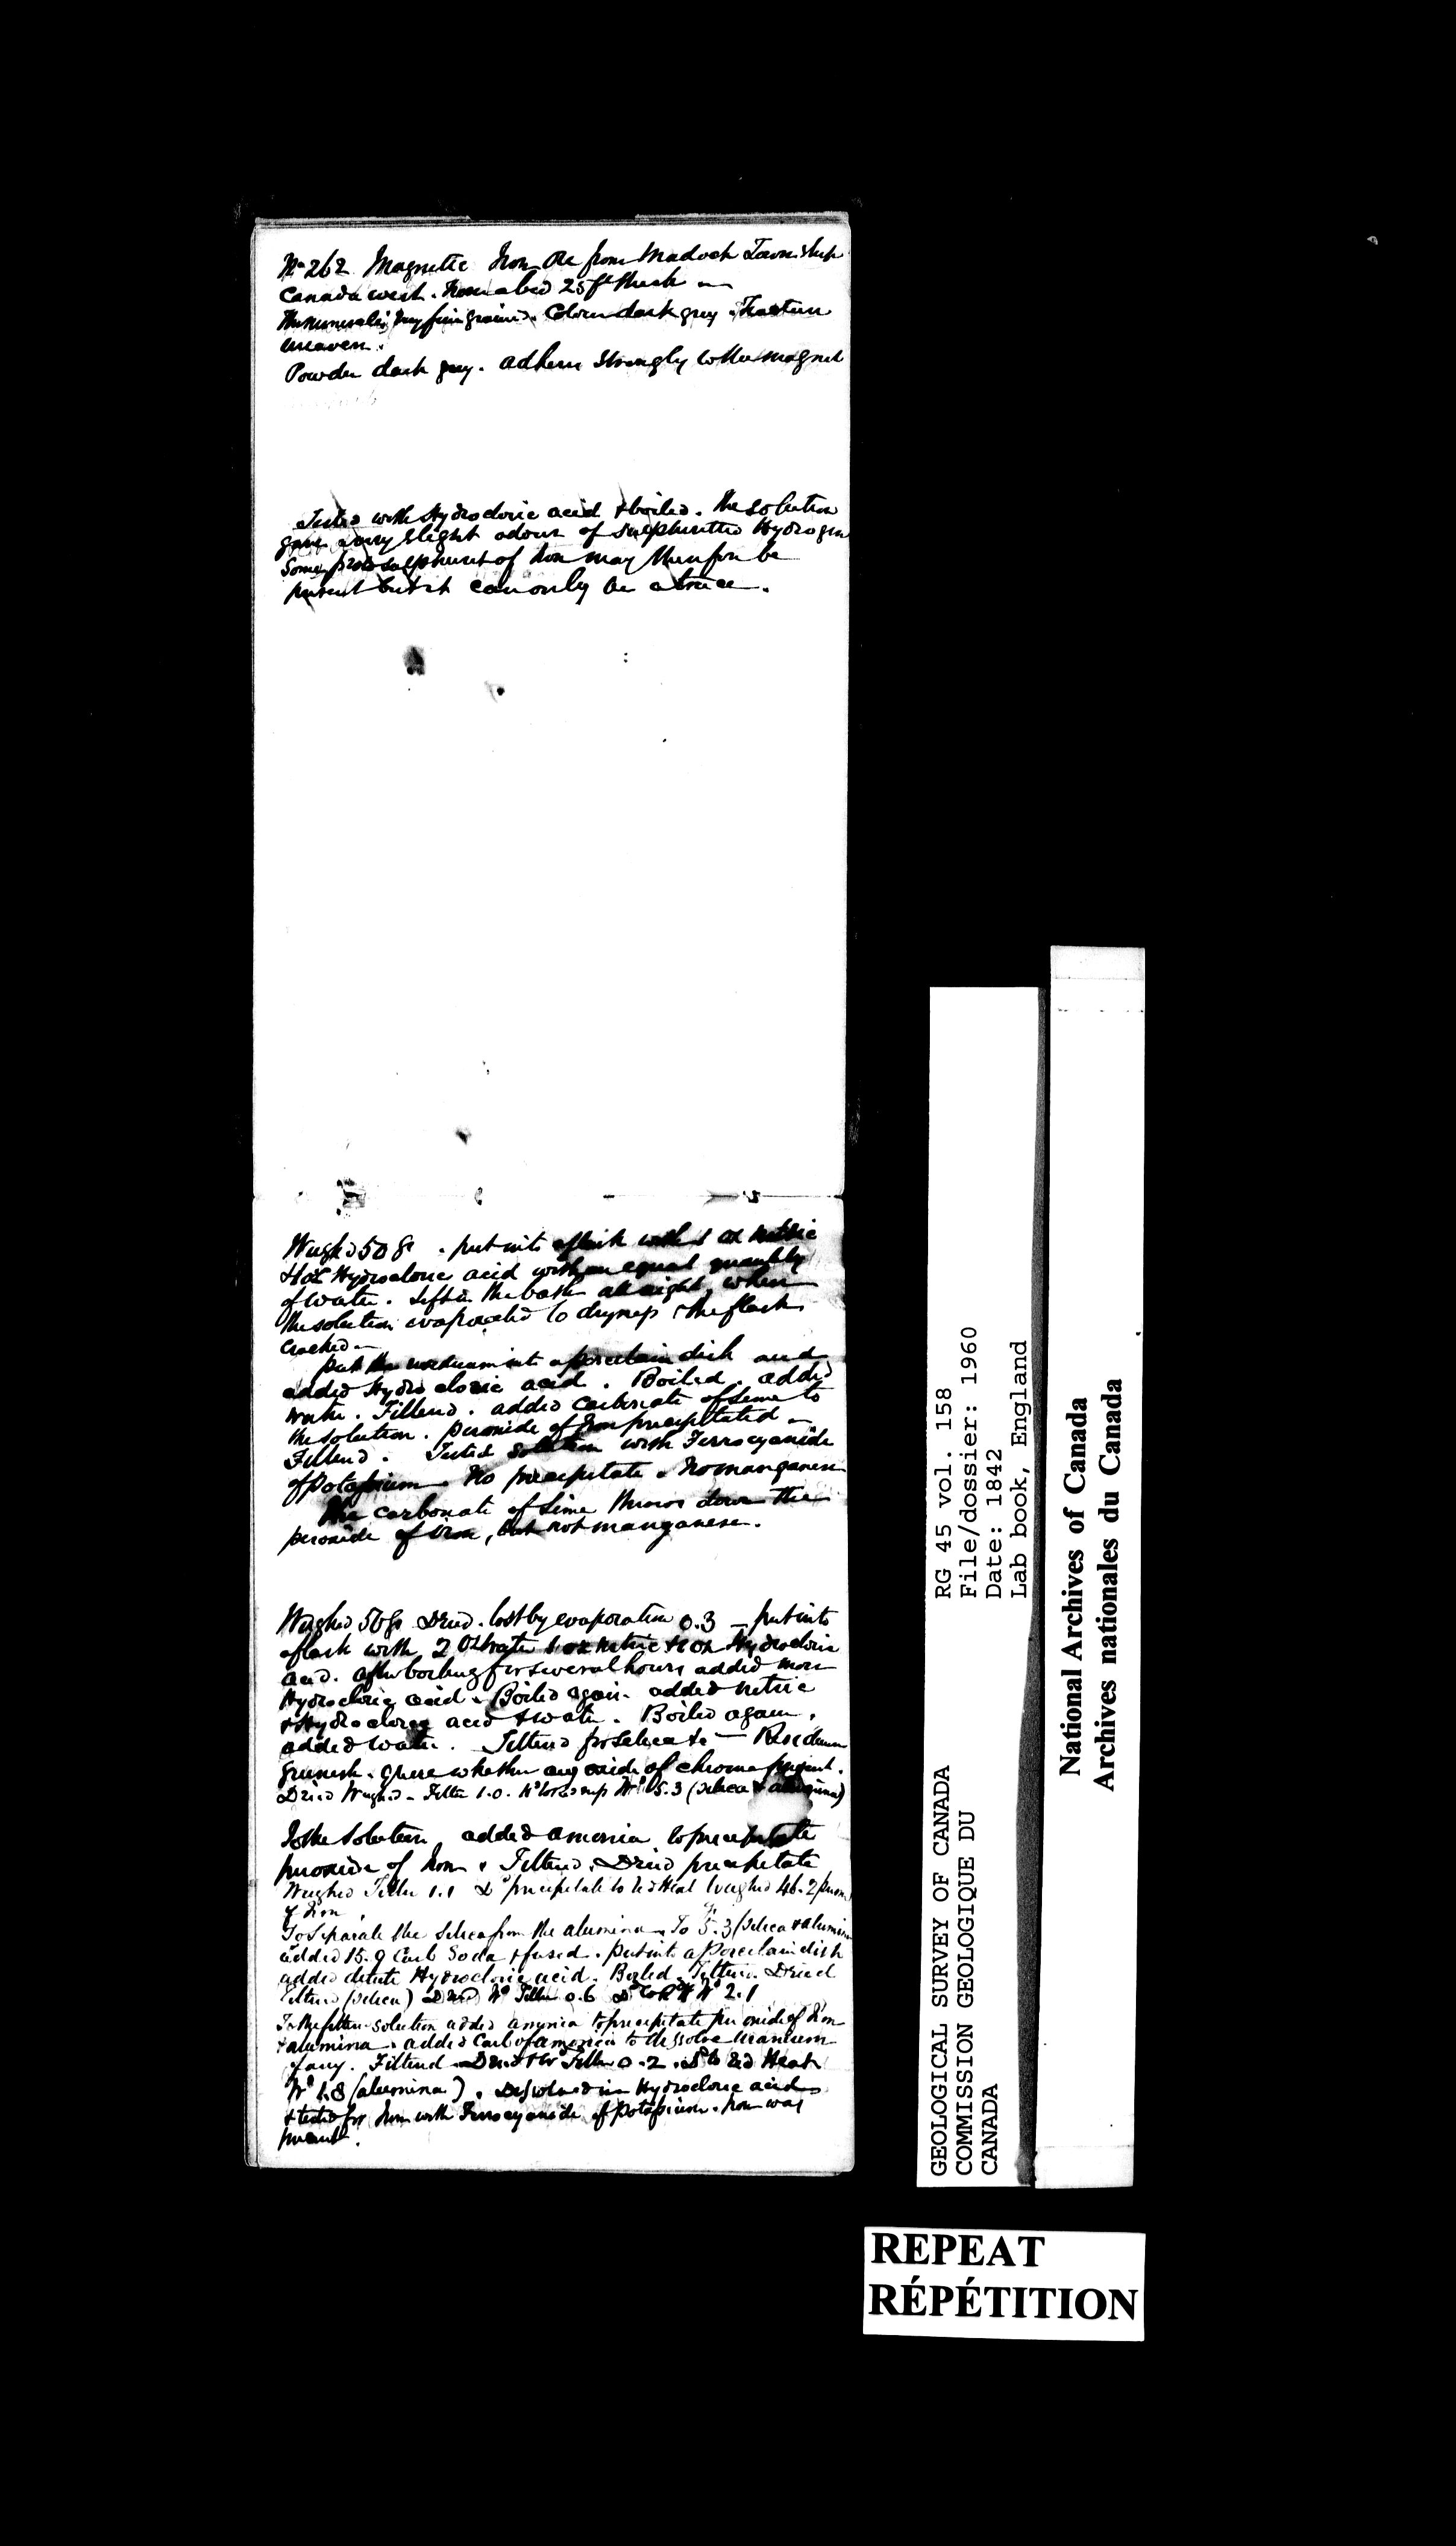 No 262 Magnetic Iron Ore from Madock Township
Canada west. From a bed 25 ft thick —
The mineral is very fine grained. Colour dark grey. Fracture
uneven.
Powder dark grey. adheres strongly to the magnet
Tested with Hydrocloric acid & boiled. The solution
gave a very slight odour of Sulphuretted Hydrogen
Some proto sulphuret of Iron may therefore be
present but it can only be a trace.
Weighed 50 gr. put into a flask with 1 oz Nitric
Hydrocloric acid with an equal quantity
of water. Left in the bath all night, when
the solution evaporated to dryness & the flask
cracked —
Put the residuum into a porcelain dish and
added Hydrocloric acid. Boiled. added
water. Filtered. added carbonate of lime to
the solution. peroxide of Iron precipitated —
Filtered. Tested solution with Ferrocyanide
of Potassium. No precipitate. No manganese
The carbonate of lime throws down the
peroxide of iron, but not manganese.
Weighed 50 gr Dried. lost by evaporation 0.3 — put into
a flask with 2 oz Water 1 oz Nitric & 1 oz Hydrocloric
acid. after boiling for several hours added more
Hydrocloric acid. Boiled again. added Nitric
& Hydrocloric acid & water. Boiled again.
added water. Filtered for Silica &c — Residuum
greenish. quere whether any oxide of chrome present.
Dried Weighed — Filter 1.0. Wt 5.3 (silica & alumina)
To the Solution added amonia to precipitate
peroxide of Iron & Filtered. Dried precipitate
Weighed Filter 1.1 Do precipitate to red Heat Weighed 46.2 perox
of Iron
To Separate the Silica from the alumina — To 5.3 gr (silica & alumina
added 15.9 Carb Soda & fused. put into a Porcelain dish
added dilute Hydrocloric acid. Boiled. Filtered Dried
Filtered (silica) Dried Wt Filter 0.6 Do to Rd Ht Wt 2.1
To the filter solution added amonia to precipitate per oxide of Iron
& alumina. added Carb of amonia to dissolve uranium
if any. Filtered Dried & Wd Filter 0.2. Do to Red Heat
Wd 1.8 (alumina). Dissolved in Hydrocloric acid
& tested for Iron with Ferrocyanide of Potassium. Iron was
present.
GEOLOGICAL SURVEY OF CANADA
COMMISSION GEOLOGIQUE DU
CANADA
RG 45 vol. 158
File/dossier: 1960
Date: 1842
Lab book, England
National Archives of Canada
Archives nationales du Canada
REPEAT
RÉPÉTITION